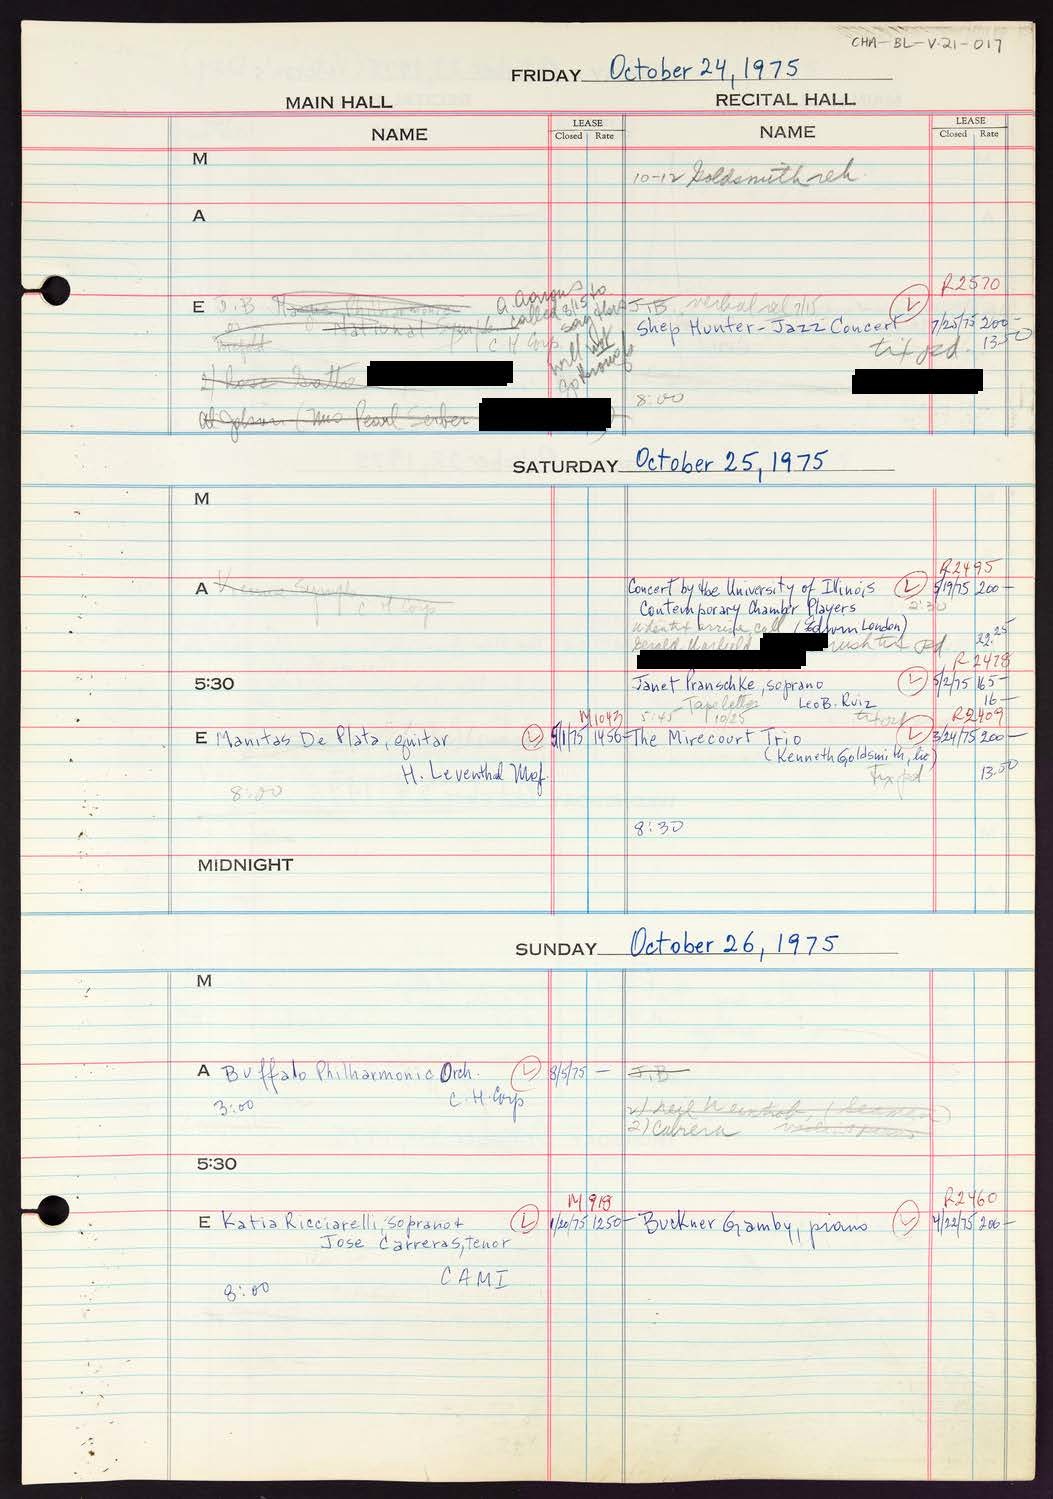 CHA-BL-V.21-017
FRIDAY October 24, 1975
MAIN HALL RECITAL HALL
NAME LEASE Closed Rate NAME LEASE Closed Rate
M
10-12 Goldsmith reh.
A
R2570
E J.B. verbal rel 7/15
National Symph
C H Corp.
a. Aarons
called 8/15 to
say that
will not
go through
Shep Hunter-Jazz Concert L 7/25/75 200-
tix pd. 13.50
2) Rose
Al Jolson (Mrs Pearl Serber
8:00
SATURDAY October 25, 1975
M
R2495
A Symph
C H Corp
Concert by the University of Illinois L 5/19/75 200-
Contemporary Chamber Players 2:30
when tix arrive call (Edwin London)
Gerald Warfield rush tix pd 22.25
R2478
5:30
Janet Pranschke, soprano L 5/2/75 165-
Tape letter Leo B. Ruiz 16-
5:45 10/25 tix pd
M1043 R2409
E Manitas De Plata, guitar L 5/1/75 1456-
H. Leventhal Mgt.
8:00
The Mirecourt Trio L 3/24/75 200-
(Kenneth Goldsmith, vio)
Tix pd 13.50
8:30
MIDNIGHT
SUNDAY October 26, 1975
M
A Buffalo Philharmonic Orch. L 8/5/75 -
3:00 C.H. Corp
J.B
2) Cabrera
5:30
M918 R2460
E Katia Ricciarelli, soprano + L 1/20/75 1250-
Jose Carreras, tenor
CAMI
8:00
Buckner Gamby, piano L 4/22/75 200-